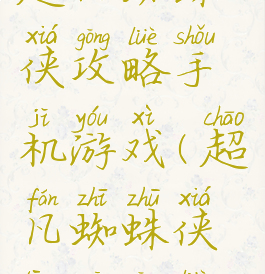 xiá gōng lüè shǒu
侠攻略手
jī yóu xì chāo
机游戏(超
fán zhī zhū xiá
凡蜘蛛侠